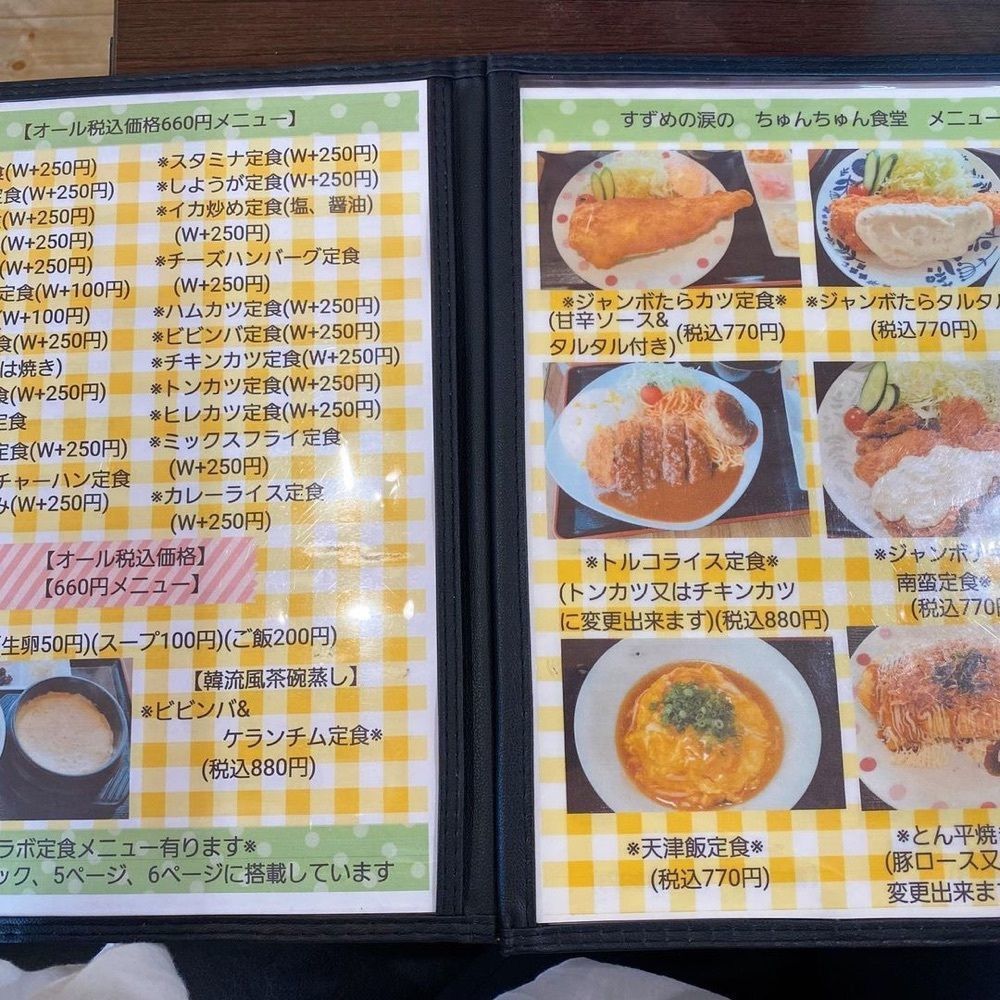 【オール税込価格660円メニュー】
食(W+250円)
定食(W+250円)
(W+250円)
(W+250円)
(W+250円)
定食(W+100円)
(W+100円)
食(W+250円)
は焼き)
食(W+250円)
定食
定食(W+250円)
チャーハン定食
み(W+250円)
※スタミナ定食(W+250円)
※しようが定食(W+250円)
※イカ炒め定食(塩、醤油)
(W+250円)
※チーズハンバーグ定食
(W+250円)
※ハムカツ定食(W+250円)
※ビビンバ定食(W+250円)
※チキンカツ定食(W+250円)
※トンカツ定食(W+250円)
※ヒレカツ定食(W+250円)
※ミックスフライ定食
(W+250円)
※カレーライス定食
(W+250円)
【オール税込価格】
【660円メニュー】
(生卵50円)(スープ100円)(ご飯200円)
【韓流風茶碗蒸し】
※ビビンバ&
ケランチム定食※
(税込880円)
ラボ定食メニュー有ります※
ック、5ページ、6ページに搭載しています
すずめの涙の ちゅんちゅん食堂 メニュー
※ジャンボたらカツ定食※
(甘辛ソース&
タルタル付き)(税込770円)
※ジャンボたらタルタル
(税込770円)
※トルコライス定食※
(トンカツ又はチキンカツ
に変更出来ます)(税込880円)
※ジャンボチ
南蛮定食※
(税込770円
※天津飯定食※
(税込770円)
※とん平焼き
(豚ロース又
変更出来ます